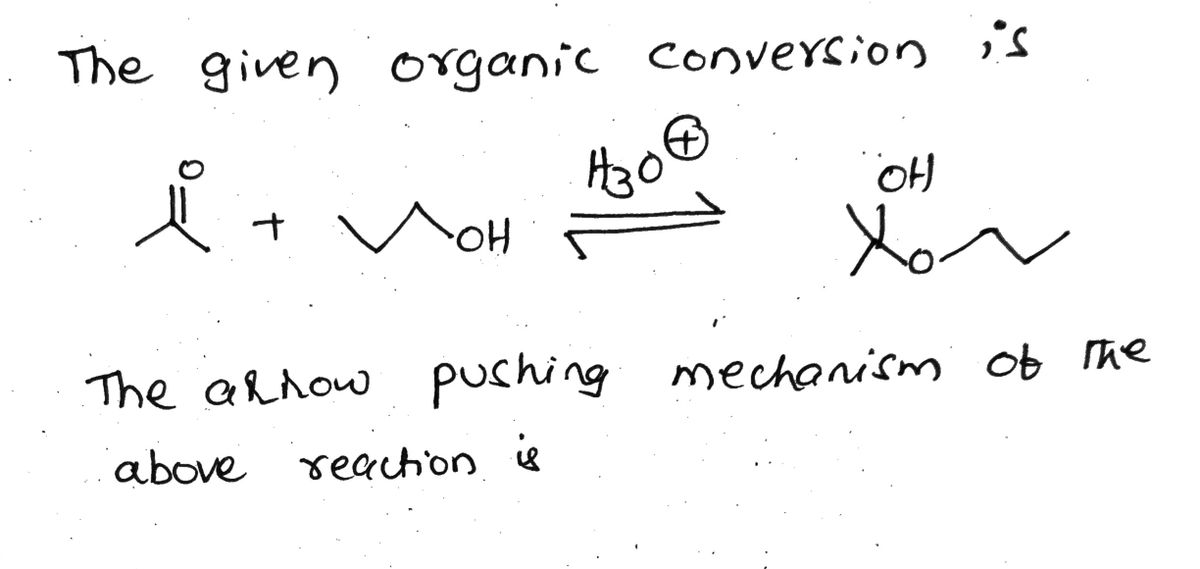 The given organic conversion is
H3O⊕
O + OH ⇌ OH
O
The arrow pushing mechanism of the
above reaction is